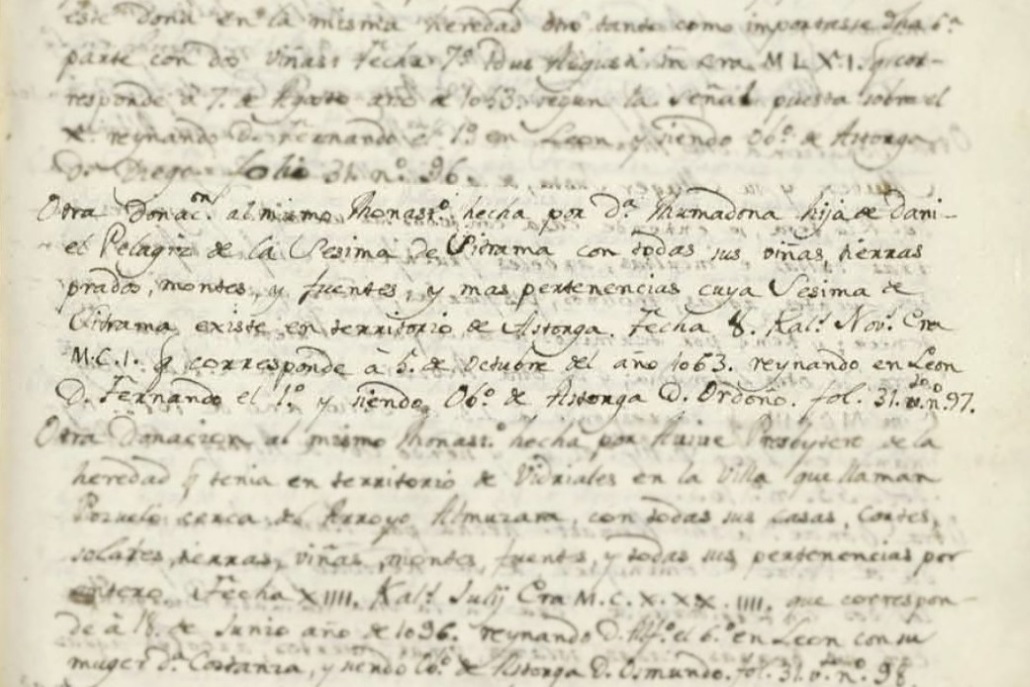 este dona en la misma heredad otro tanto como importasse dha 6ª
parte con dos viñas fecha 7º Idus Augusti in era M L Xº I. q cor-
responde á 7. de Agosto año de 1063. segun la señal puesta sobre el
X. reynando Dn Fernando el 1º en Leon, y siendo Obº de Astorga
Dn Diego folio 31. nº 96.
Otra Donacn al mismo Monastº hecha por Dª Mumadona hija de Dani-
el Pelagiz de la Sesima de con todas sus viñas tierras
prados, montes, y fuentes, y mas pertenencias cuya Sesima de
existe en territorio de Astorga. Fecha 8. Kalˢ Novˢ Era
M.C.I. q corresponde á 5. de Octubre del año 1063. reynando en Leon
D. Fernando el 1º y siendo Obº de Astorga D. Ordoño. fol. 31. vto. nº 97.
Otra Donacion al mismo Monastº hecha por Presbytero de la
heredad q tenia en territorio de Vidriales en la Villa que llaman
Pozuelo cerca del Arroyo Almuzara, con todas sus casas, Cortes,
solares, tierras, viñas, montes, fuentes, y todas sus pertenencias por
entero. Fecha XIIII. Kalˢ Julij Era M.C.X.XX.IIII. que correspon-
de á 18. de Junio año de 1096. reynando D. Alfº el 6º en Leon con su
muger Dª Costanza, y siendo Obº de Astorga D. Osmundo. fol. 31. vto. nº 98.